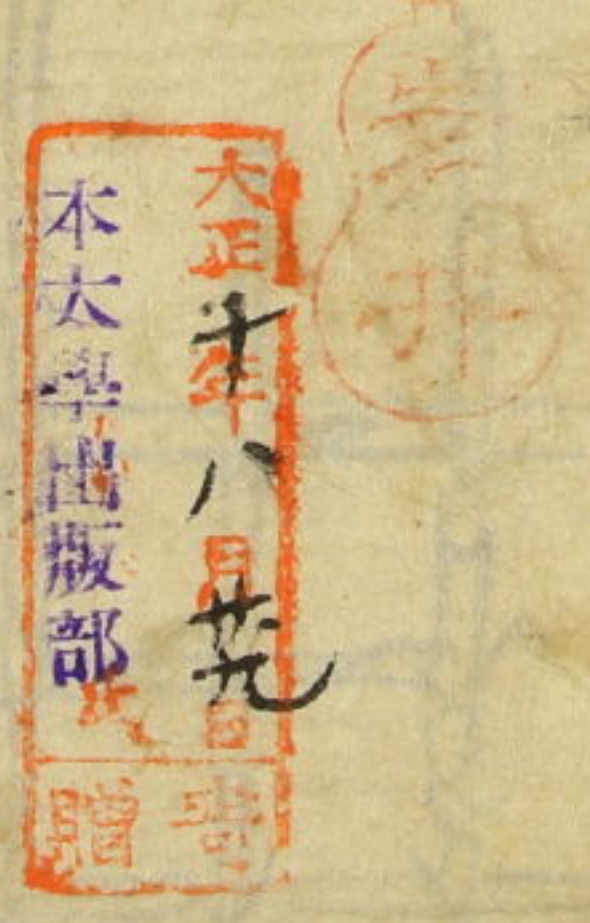 井
大正十年八月廿九日
本大學出版部氏
寄贈